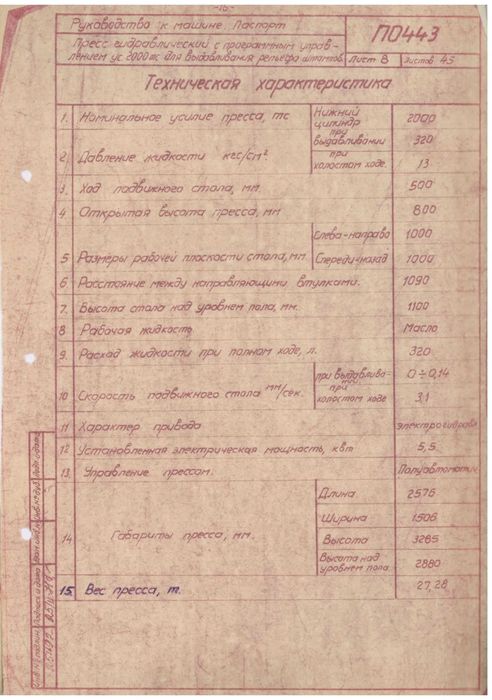 -16-
Руководство к машине. Паспорт
Пресс гидравлический с программным управ-
лением ус 2000тс для выдавливания рельефа штампов.
ПО443
Лист 8
Листов 45
Техническая характеристика
1. Номинальное усилие пресса, тс
Нижний цилиндр
2000
2. Давление жидкости кгс/см²
при выдавливании
320
при холостом ходе.
13
3. Ход подвижного стола, мм
500
4 Открытая высота пресса, мм
800
5 Размеры рабочей плоскости стола, мм.
Слева-направо
1000
Спереди-назад
1000
6 Расстояние между направляющими втулками.
1090
7. Высота стола над уровнем пола, мм.
1100
8 Рабочая жидкость
Масло
9. Расход жидкости при полном ходе, л.
320
10 Скорость подвижного стола мм/сек.
при выдавлива-
0÷0,14
при холостом ходе
3,1
11 Характер привода
электрогидравл
12 Установленная электрическая мощность, квт
5,5
13. Управление прессом.
Полуавтоматич
14 Габариты пресса, мм.
Длина
2576
Ширина
1506
Высота
3285
Высота над уровнем пола
2880
15. Вес пресса, т.
27,28
Инв № подлин. Подпись и дата